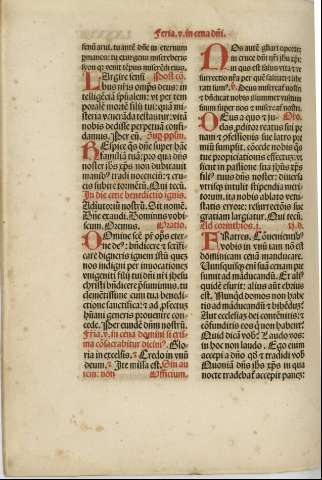 Feria. v. in cena dñi.
fenũ arui. tu autẽ dñe in eternum
ꝑmanes: tu exurgens misereberis
syon qꝛ venit tẽpus miserẽdi eius.
Largire sensi Post cõ.
bus nr̃is omps deus: in
intelligẽtiã spũalem: vt per tem
poralẽ mortẽ filij tui: quã mi
steria venerãda testantur: vitã
nobis dedisse perpetuã confi
damus. Per eũ. Sup ppl'm.
Respice qs̃ dñe super hãc
familiã tuã: pro qua dñs
noster ihs xp̃s non dubitauit
manib' tradi nocentiũ: et cru
cis subire tormẽtũ. Qui tecũ.
In die cene benedictio ignis.
Adiutoriũ nostrũ. Sit nomẽ.
Dñe exaudi. Dominus vobis
cum. Oremus. Oratio.
Omnipotẽs sẽpiter
ne de': bñdicere et sctifi
care digneris ignem istũ quẽ
nos indigni per inuocationẽ
vnigeniti filij tui dñi nr̃i ihesu
christi bñdicere p̃sumimus. tu
clementissime eum tua benedi
ctione sanctifica: et ad ꝓfectus
hũani generis prouenire con
cede. Per eundẽ dñm nostrũ.
Feria. v. in cena domini si cris
ma cõsacrabitur dicitur. Glo
ria in excelsis. et Credo in vnũ
deum. et Ite missa est. Sin au
tem: non Officium.
Nos autẽ gl'iari oportet
in cruce dñi nr̃i ihu xp̃i:
in quo est salus vita et re
surrectio nr̃a: per quẽ saluati et libe
rati sum'. Deus misereat' nostri
et bñdicat nobis illuminet vultum
suum super nos et misereat' nostri.
Deus a quo et iu- Oro.
das ꝓditor reatus sui pe
nam et ꝓfessionis sue latro pre
miũ sumpsit. cõcede nobis qs̃
tue propiciationis effectũ: vt si
cut in passione sua ihũs xp̃s fili'
tuus dñs noster: diuersa
vtrisqꝫ intulit stipendia meri
torum. ita nobis ablato vetu
statis errore: resurrectõis sue
gratiam largiatur. Qui tecũ.
Ad corinthios. j. xj. d.
Fratres. Cõuenientib'
vobis in vnũ iam nõ est
dominicam cenã manducare.
Unusquisqꝫ eni suã cenam pre
sumit ad mãducandũ. Et ali'
quidẽ esurit: alius aũt ebrius
est. Nunqd domos non habe
tis ad mãducandũ et bibẽdũ?
Aut ecclesiaꝫ dei contẽnitis: et
cõfunditis eos qui non habent?
Quid dicã vob? Laudo vos:
in hoc non laudo. Ego enim
accepi a dño qd et tradidi vob
Quoniã dñs ihs xp̃s in qua
nocte tradebat' accepit panẽ: